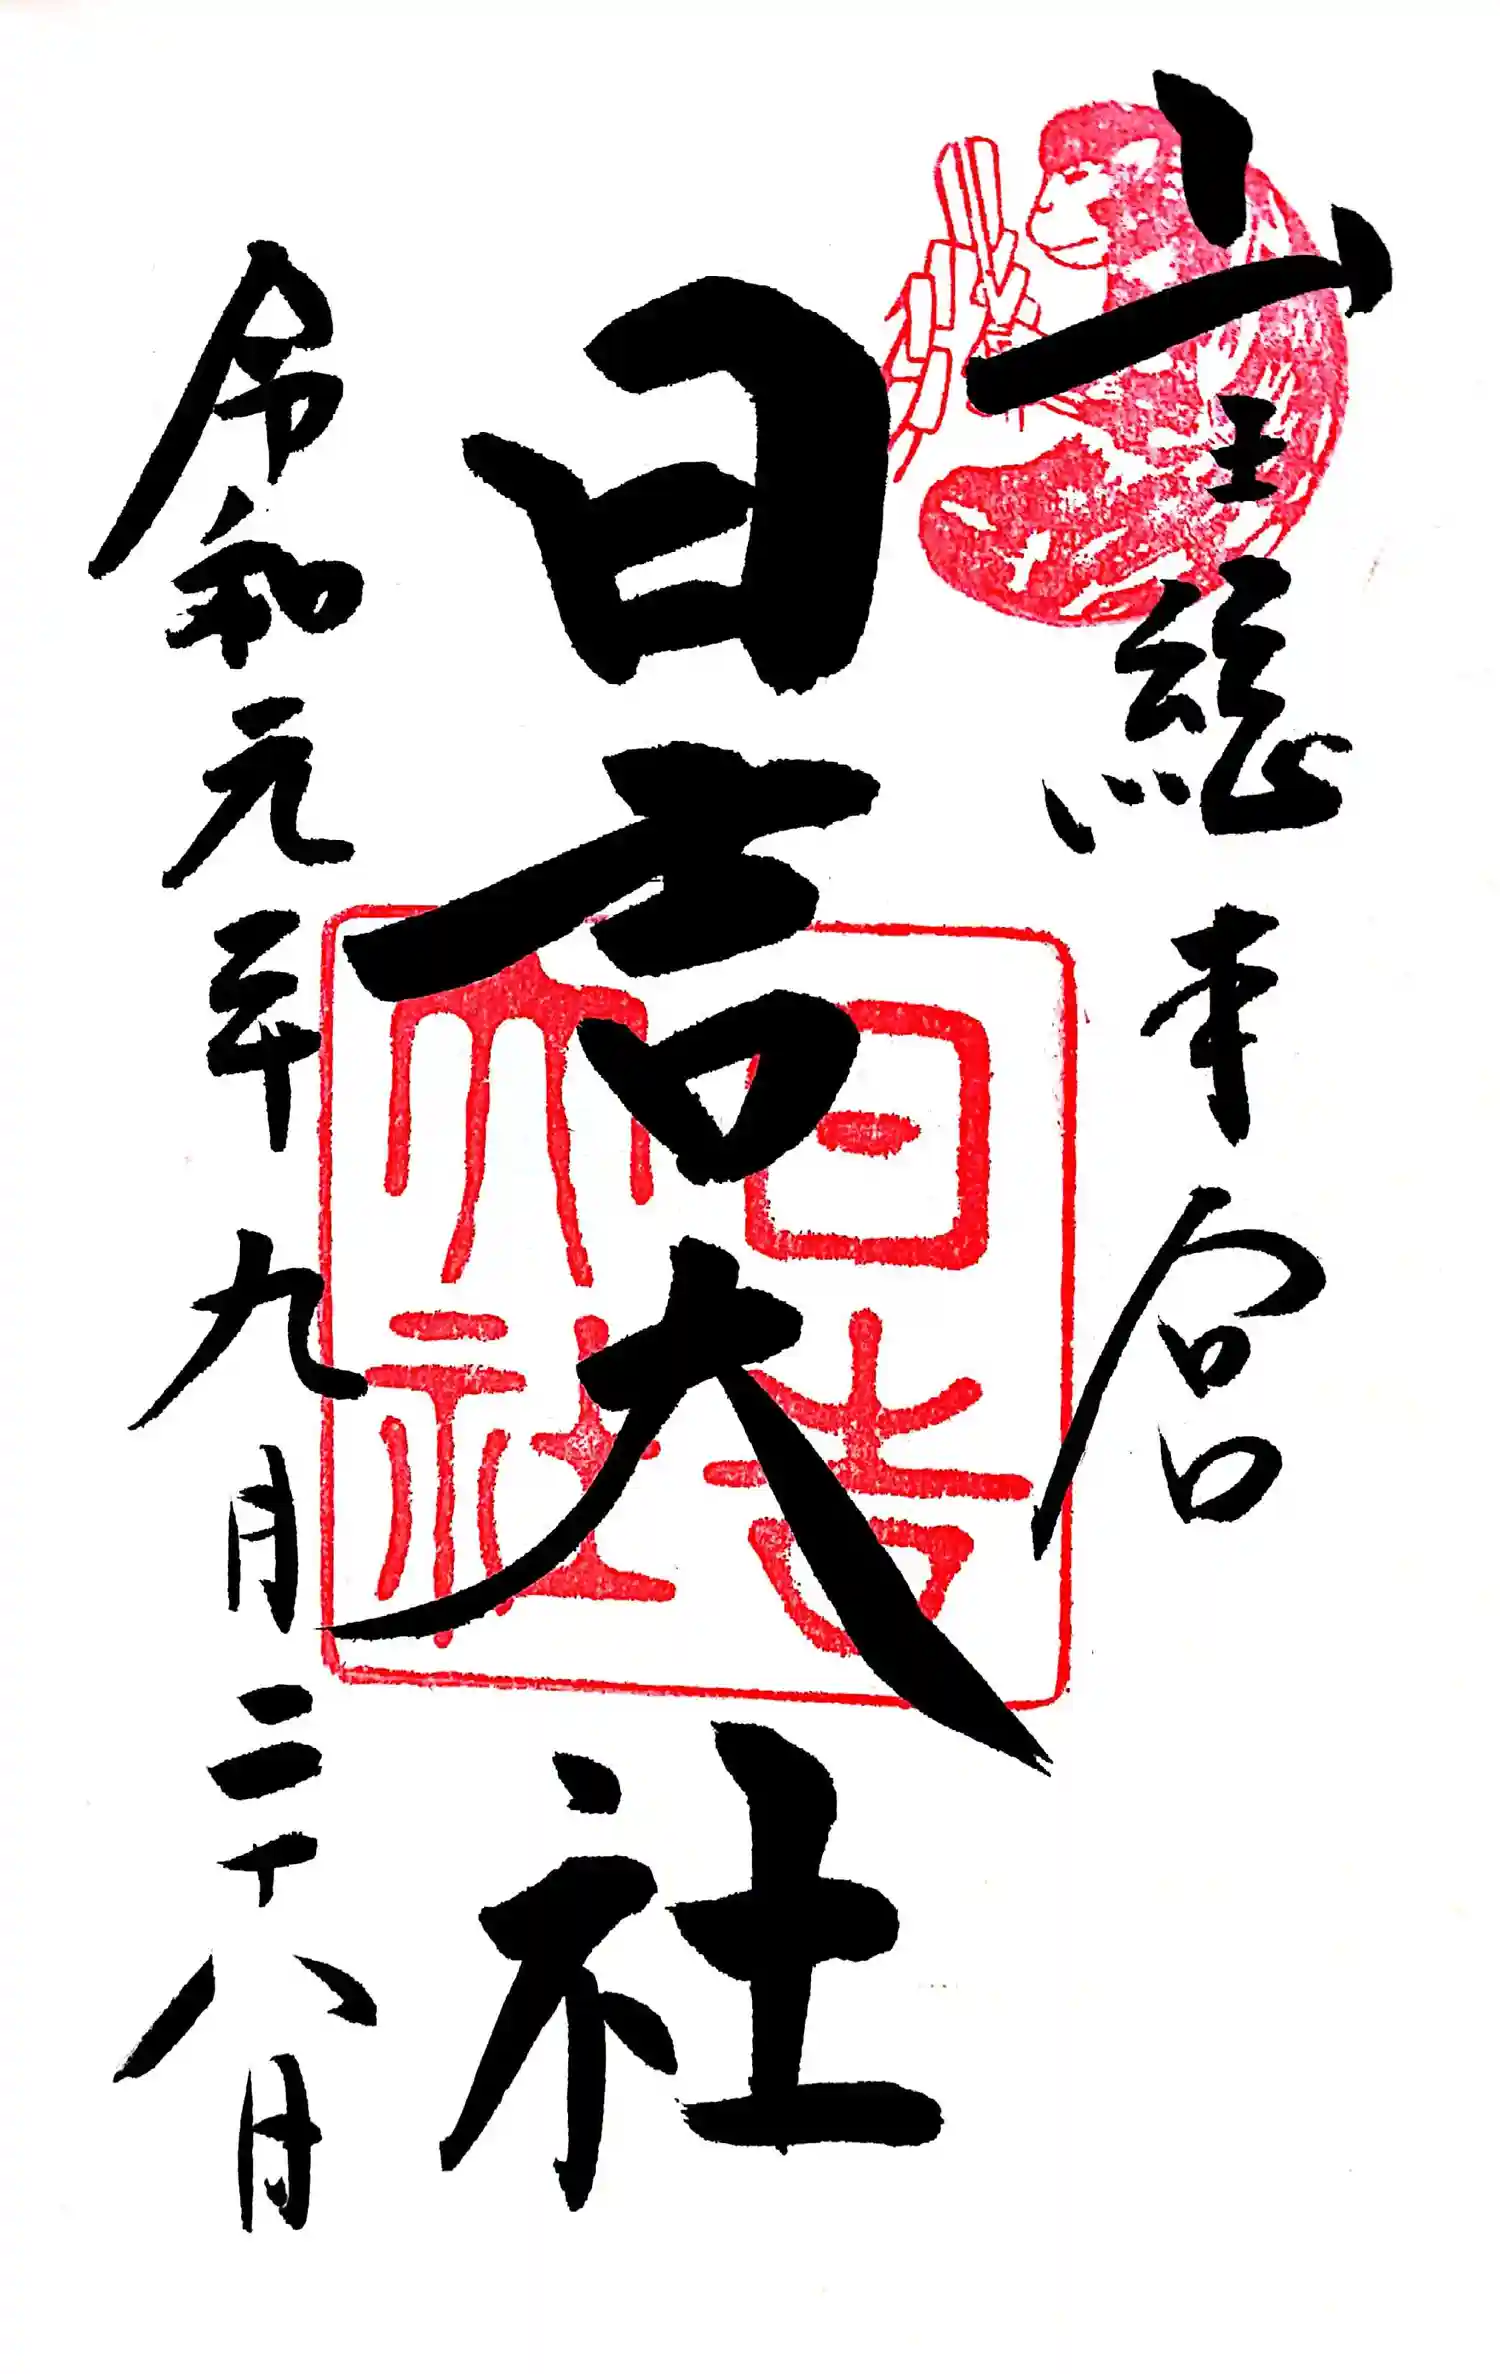 山王総本宮
日吉大社
令和元年九月二十八日
日吉
大社